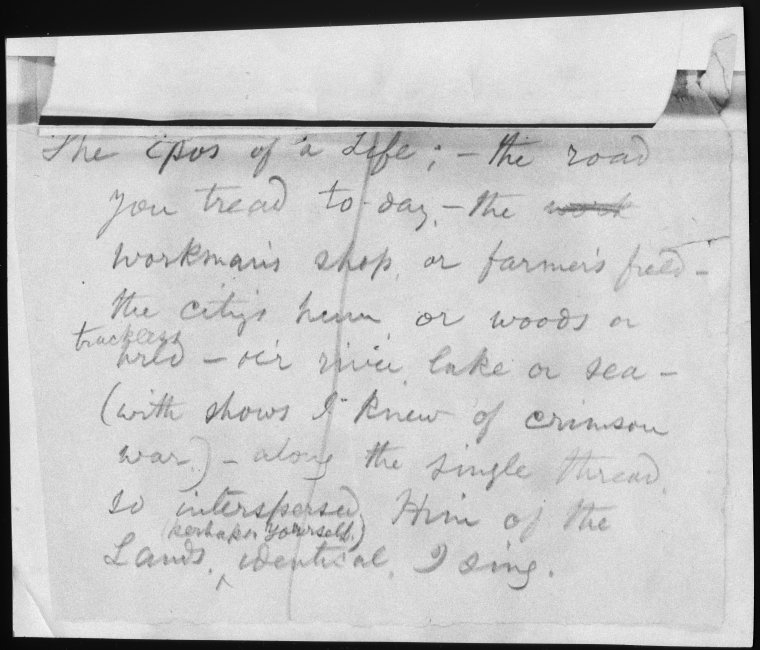 The epos of a Life; — the road
you tread to-day, — the work
workman's shop, or farmer's field —
the city's hum, or woods or
trackless
wild — o'er river lake or sea —
(with shows I knew of crimson
war,) — along the single thread,
so interspersed, Him of the
(perhaps yourself,)
Lands, ^ identical, I sing.